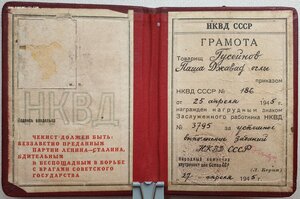 НКВД
Подпись владельца
ЧЕКИСТ ДОЛЖЕН БЫТЬ:
БЕЗЗАВЕТНО ПРЕДАННЫМ
ПАРТИИ ЛЕНИНА—СТАЛИНА,
БДИТЕЛЬНЫМ
И БЕСПОЩАДНЫМ В БОРЬБЕ
С ВРАГАМИ СОВЕТСКОГО
ГОСУДАРСТВА
НКВД СССР
ГРАМОТА
Товарищ Гусейнов
Паша Джавад оглы
приказом
НКВД СССР № 186
от 25 апреля 1945 г.
награжден нагрудным знаком
Заслуженного работника НКВД
№ 3795 за успешное
выполнение заданий
НКВД СССР
Народный комиссар
внутренних дел Союза ССР
(Л. Берия)
27 апреля 1945 г.